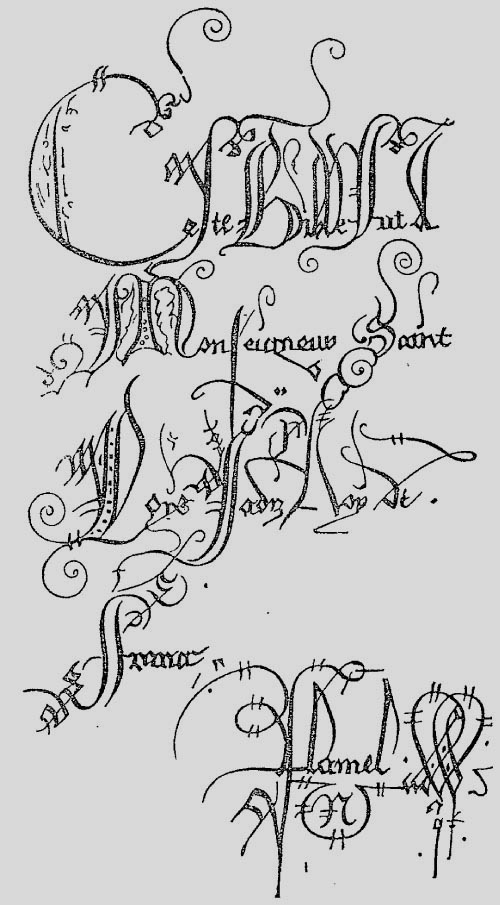 Ceste Bible fut a
Monseigneur Saint
Loys Jadiz Roy de
France
Flamel
N